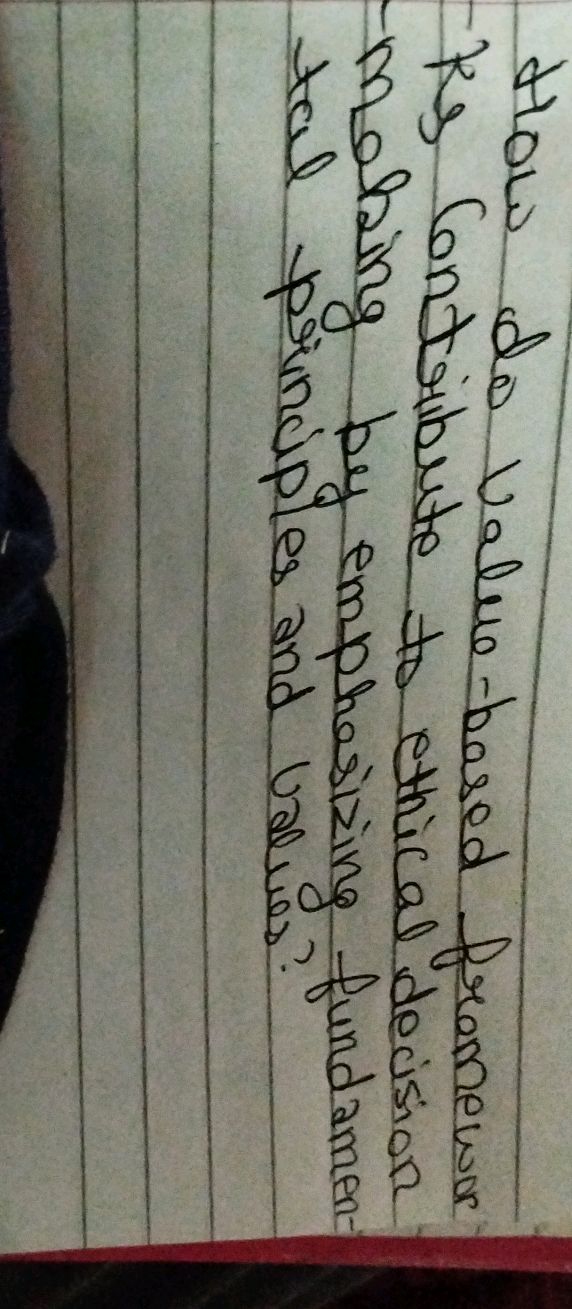 How do value-based framewor
-ks contribute to ethical decision
-making by emphasizing fundamen-
-tal principles and values?